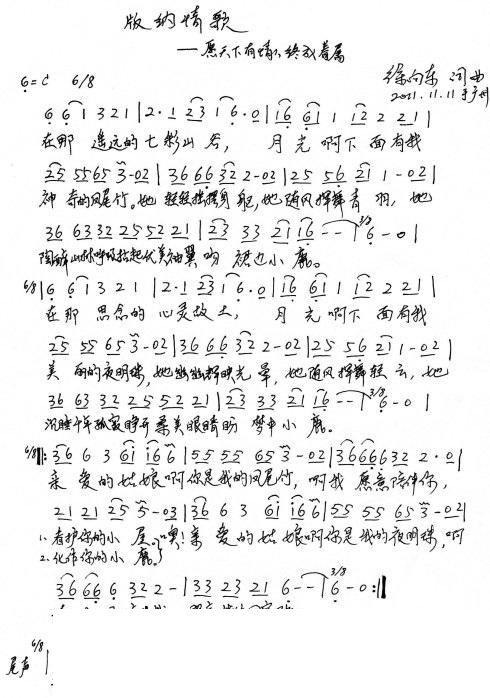 版纳情歌
——愿天下有情人终成眷属
6=C 6/8
徐向东 词曲
2011.11.11 于广州
6 6 1 3 2 1 | 2·1 2 3 1 6·0 | 1 6 6 1 1 1 2 2 2 1 |
在那 遥远的七彩山谷， 月光啊下面有我
2 5 5 5 6 5 3-0 2 | 3 6 6 6 3 2 2-0 2 | 2 5 5 6 2 1 1-0 2 |
神奇的凤尾竹。她轻轻摇摆身躯，她随风挥舞青羽，她
3 6 6 3 3 2 2 5 5 2 2 1 | 2 3 3 3 2 1 1 6 - - | 3/8 6 - 0 |
陶醉山林呼吸 起伏美袖翼吻裙边小鹿。
6/8 | 6 6 1 3 2 1 | 2·1 2 3 1 6·0 | 1 6 6 1 1 1 2 2 2 1 |
在那 思念的心灵故土， 月光啊下面有我
2 5 5 5 6 5 3-0 2 | 3 6 6 6 3 2 2-0 2 | 2 5 5 6 2 1 1-0 2 |
美丽的夜明珠，她幽幽挥映光晕，她随风挥舞轻云，她
3 6 6 3 3 2 2 5 5 2 2 1 | 2 3 3 3 2 1 1 6 - - | 3/8 6 - 0 |
沉睡千年孤寂睁开柔美眼睛盼梦中小鹿。
6/8 ‖: 3 6 6 3 6 1 1 6 6 | 5 5 5 5 6 5 3-0 2 | 3 6 6 6 6 3 2 2·0 |
亲爱的姑娘啊你是我的凤尾竹，啊我愿意陪伴你，
2 1 2 1 2 5 3-0 3 | 3 6 6 3 6 1 1 6 6 | 5 5 5 5 6 5 3-0 2 |
1. 看护你的小屋。噢！亲爱的姑娘啊你是我的夜明珠，啊
2. 化作你的小鹿。
3 6 6 6 6 3 2 2 - | 3 3 2 3 2 1 6 - - | 3/8 6 - 0 :‖
尾声 6/8 |